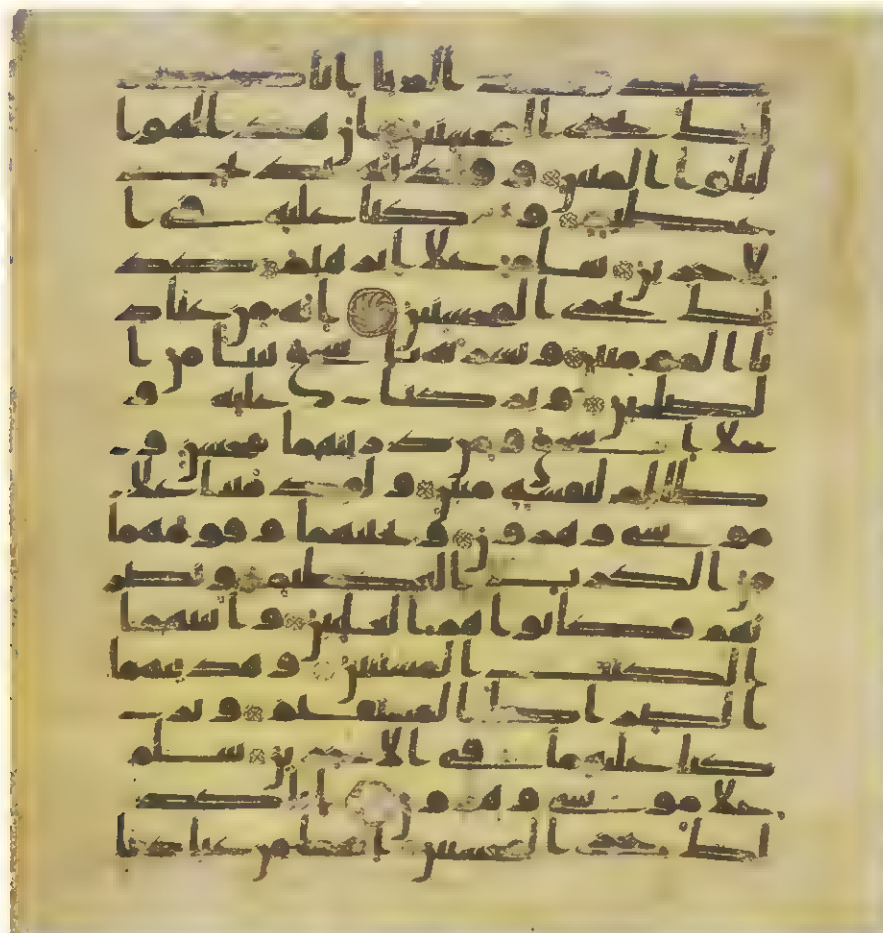 صدقت الريا انا كذ
لك نجزى المحسنين ان هذا لهو ا
لبلوا المبين وفدينه بذبح
عظيم وتركنا عليه فى ا
لاخرين سلم على ابرهيم كذ
لك نجزى المحسنين انه من عباد
نا المومنين وبشرنه باسحق نبيا من ا
لصلحين وبركنا عليه و
على اسحق ومن ذريتهما محسن و
ظالم لنفسه مبين ولقد مننا على
موسى وهرون ونجينهما وقومهما
من الكرب العظيم ونصر
نهم فكانوا هم الغلبين واتينهما
الكتب المستبين وهدينهما
الصرط المستقيم وتر
كنا عليهما فى الاخرين سلم
على موسى وهرون انا كذ
لك نجزى المحسنين انهما من عبادنا